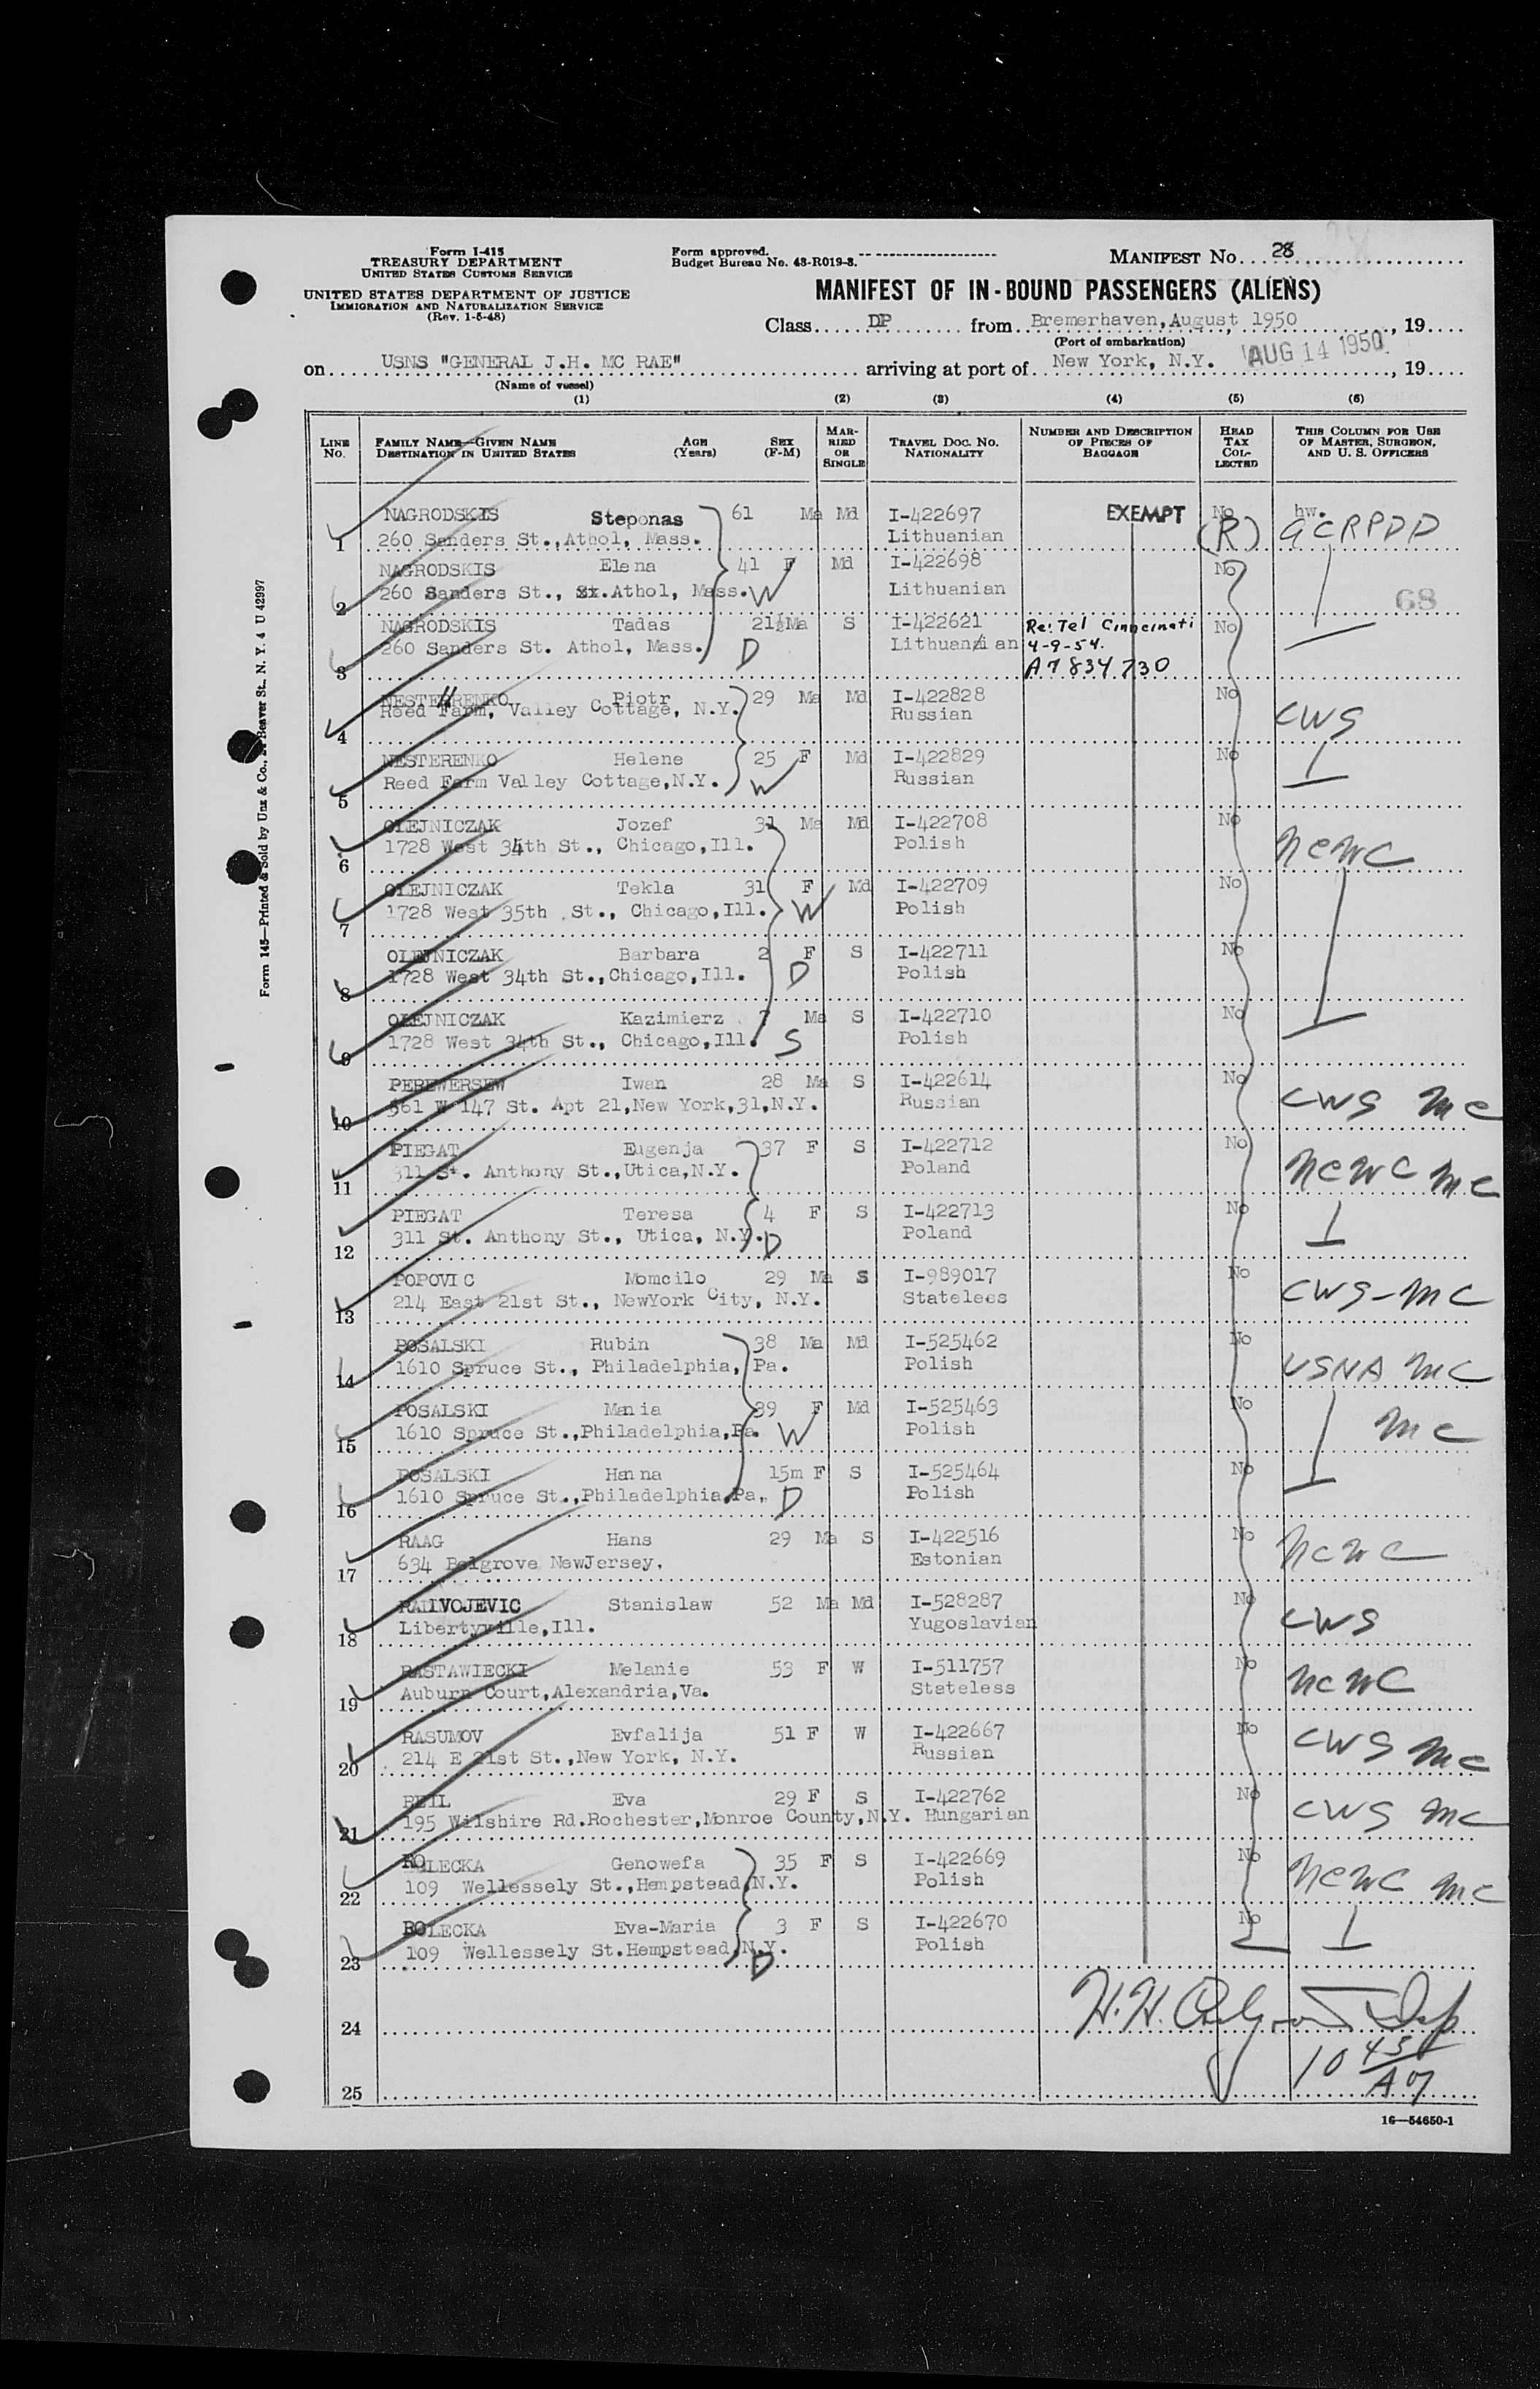 Form I-415
TREASURY DEPARTMENT
UNITED STATES CUSTOMS SERVICE
UNITED STATES DEPARTMENT OF JUSTICE
IMMIGRATION AND NATURALIZATION SERVICE
(Rev. 1-5-48)
Form approved.
Budget Bureau No. 43-R019-3.
MANIFEST No. 28
MANIFEST OF IN-BOUND PASSENGERS (ALIENS)
Class DP from Bremerhaven, August, 1950, 19
(Port of embarkation)
on USNS "GENERAL J.H. MC RAE" arriving at port of New York, N.Y. AUG 14 1950, 19
(Name of vessel)
(1) (2) (3) (4) (5) (6)
LINE No. FAMILY NAME—GIVEN NAME DESTINATION IN UNITED STATES AGE (Years) SEX (F-M) MARRIED OR SINGLE TRAVEL DOC. NO. NATIONALITY NUMBER AND DESCRIPTION OF PIECES OF BAGGAGE HEAD TAX COLLECTED THIS COLUMN FOR USE OF MASTER, SURGEON, AND U. S. OFFICERS
NAGRODSKIS Steponas 61 Ma Md I-422697 EXEMPT No hw.
1 260 Sanders St., Athol, Mass. Lithuanian (R) GCRPDD
NAGRODSKIS Elena 41 F Md I-422698 No
2 260 Sanders St., Athol, Mass. W Lithuanian 68
NAGRODSKIS Tadas 21½ Ma S I-422621 Re: Tel Cincinnati No
260 Sanders St. Athol, Mass. D Lithuanian 4-9-54.
3 A7 834 730
NESTERRENKO Piotr 29 Ma Md I-422828 No
4 Reed Farm, Valley Cottage, N.Y. Russian CWS
NESTERENKO Helene 25 F Md I-422829 No
5 Reed Farm Valley Cottage, N.Y. W Russian
OLEJNICZAK Jozef 31 Ma Md I-422708 No
6 1728 West 34th St., Chicago, Ill. Polish NCWC
OLEJNICZAK Tekla 31 F Md I-422709 No
7 1728 West 35th St., Chicago, Ill. W Polish
OLEJNICZAK Barbara 2 F S I-422711 No
8 1728 West 34th St., Chicago, Ill. D Polish
OLEJNICZAK Kazimierz 7 Ma S I-422710 No
9 1728 West 34th St., Chicago, Ill. S Polish
PEREWERSEW Iwan 28 Ma S I-422614 No
10 561 W 147 St. Apt 21, New York, 31, N.Y. Russian CWS MC
PIEGAT Eugenja 37 F S I-422712 No
11 311 St. Anthony St., Utica, N.Y. Poland NCWC MC
PIEGAT Teresa 4 F S I-422713 No
12 311 St. Anthony St., Utica, N.Y. D Poland
POPOVIC Momcilo 29 Ma S I-989017 No
13 214 East 21st St., NewYork City, N.Y. Statelees CWS-MC
POSALSKI Rubin 38 Ma Md I-525462 No
14 1610 Spruce St., Philadelphia, Pa. Polish USNA MC
POSALSKI Mania 39 F Md I-525463 No
15 1610 Spruce St., Philadelphia, Pa. W Polish MC
POSALSKI Hanna 15m F S I-525464 No
16 1610 Spruce St., Philadelphia, Pa. D Polish
RAAG Hans 29 Ma S I-422516 No
17 634 Belgrove NewJersey. Estonian NCWC
RADIVOJEVIC Stanislaw 52 Ma Md I-528287 No
18 Libertyville, Ill. Yugoslavian CWS
RASTAWIECKI Melanie 53 F W I-511757 No
19 Auburn Court, Alexandria, Va. Stateless NCWC
RASUMOV Evfalija 51 F W I-422667 No
20 214 E 21st St., New York, N.Y. Russian CWS MC
REIL Eva 29 F S I-422762 No
21 195 Wilshire Rd. Rochester, Monroe County, N.Y. Hungarian CWS MC
ROLECKA Genowefa 35 F S I-422669 No
22 109 Wellessely St., Hempstead, N.Y. Polish NCWC MC
ROLECKA Eva-Maria 3 F S I-422670 No
23 109 Wellessely St. Hempstead, N.Y. D Polish
24 H.H.
25 10 45/A 07
16—54650-1
Form 145—Printed & Sold by Unz & Co., Beaver St., N. Y. 4 U 42997